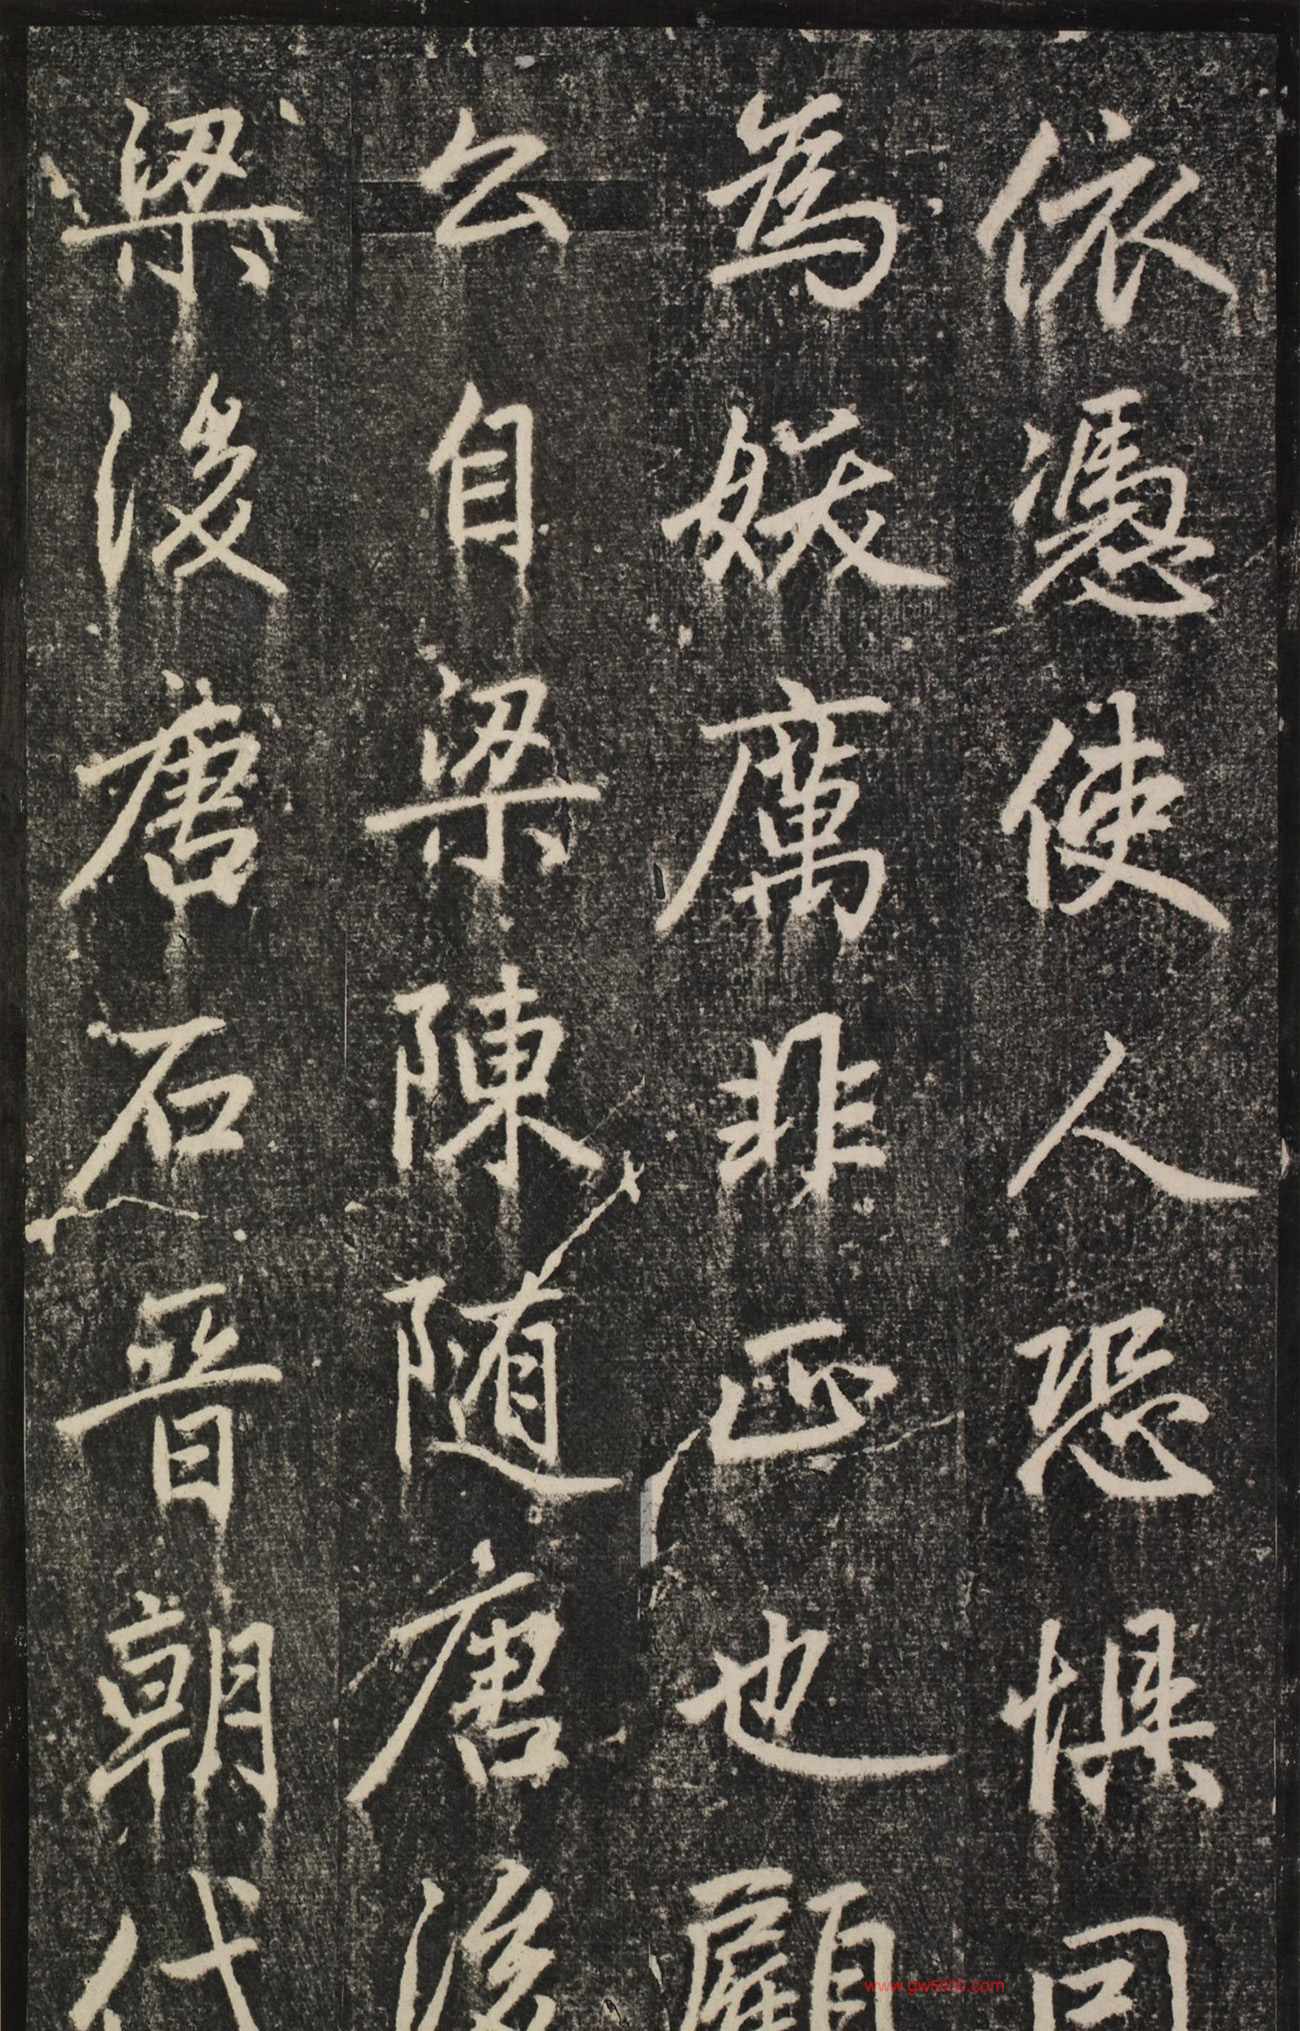 依憑使人恐惧司
為妖厲非正也顧
公自梁陳随唐後
梁後唐石晉朝代
www.gw5000.com